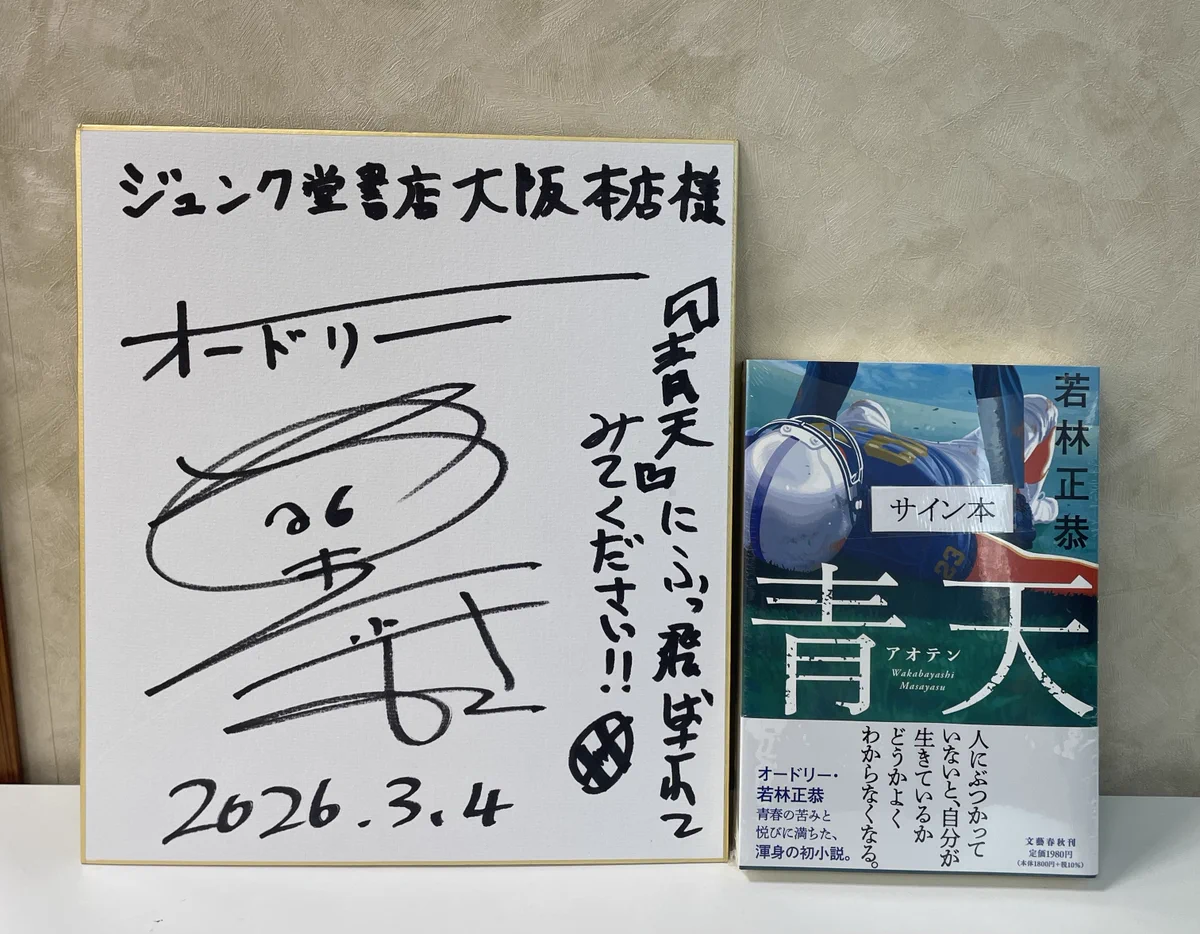 ジュンク堂書店大阪本店様
オードリー
『青天』にふっ飛ばされて
みてください!!
2026.3.4
若林正恭
サイン本
23
青天
アオテン
Wakabayashi
Masayasu
人にぶつかって
いないと、自分が
生きているか
どうかよく
わからなくなる。
オードリー・
若林正恭
青春の苦みと
悦びに満ちた、
渾身の初小説。
文藝春秋刊
定価1980円
(本体1800円+税10%)